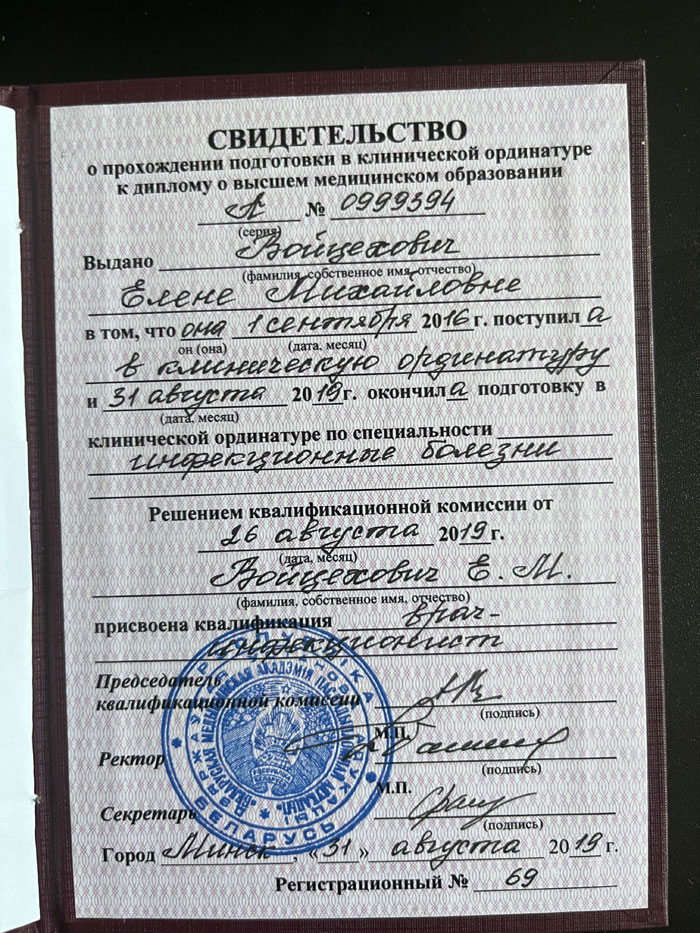 СВИДЕТЕЛЬСТВО
о прохождении подготовки в клинической ординатуре
к диплому о высшем медицинском образовании
А № 0999394
(серия)
Выдано Войцехович
(фамилия, собственное имя, отчество)
Елене Михайловне
в том, что она 1 сентября 2016 г. поступил а
он (она) (дата, месяц)
в клиническую ординатуру
и 31 августа 2019г. окончил а подготовку в
(дата, месяц)
клинической ординатуре по специальности
инфекционные болезни
Решением квалификационной комиссии от
26 августа 2019 г.
(дата, месяц)
Войцехович Е. М.
(фамилия, собственное имя, отчество)
присвоена квалификация врач-
инфекционист
Председатель
квалификационной комиссии
(подпись)
М.П.
Ректор
(подпись)
М.П.
Секретарь
(подпись)
Город Минск, «31» августа 2019 г.
Регистрационный № 69
БЕЛАРУСЬ